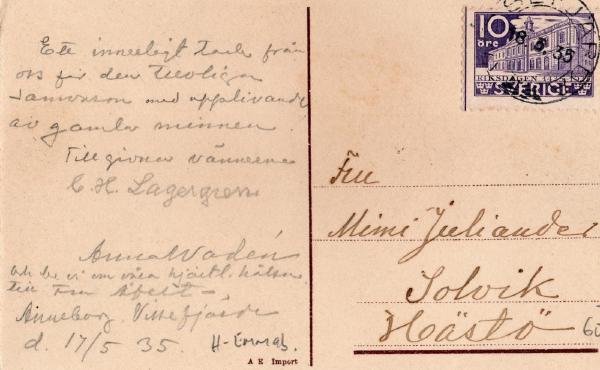 Ett innerligt tack från
oss för den trevliga
samvaron med upplivande
av gamla minnen
Tillgivna vännerna
C. H. Lagergren
Anna Wadén
och be vi om våra hjärtl. hälsn.
till Fru
Anneborg. Vissefjärda
d. 17/5 35.
A E Import
10
öre
RIKSDAGEN
SVERIGE
18.5.35
Fru
Mimi Juliander
Solvik
Hästö